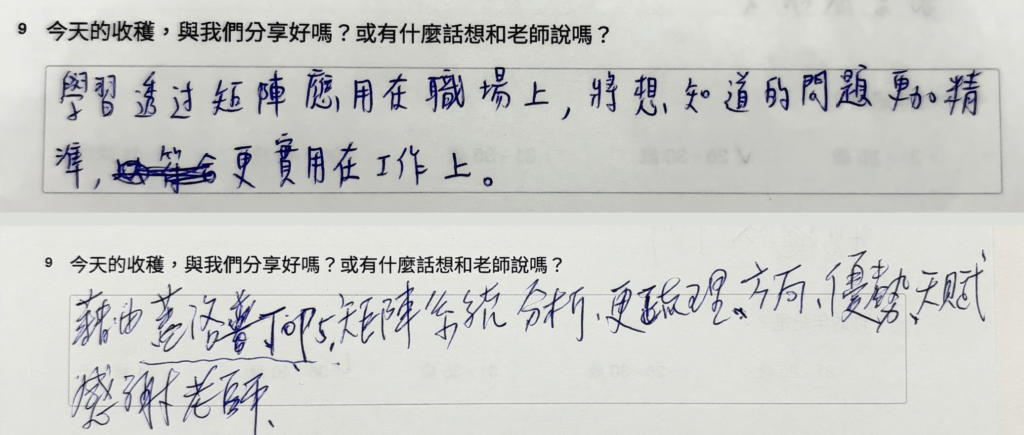 9 今天的收穫，與我們分享好嗎？或有什麼話想和老師說嗎？
學習透过矩陣應用在職場上，將想知道的問題更加精
準，更實用在工作上。
9 今天的收穫，與我們分享好嗎？或有什麼話想和老師說嗎？
藉由蓋洛普TOP5,矩陣系統分析、更疏理、方向、優勢、天賦
感謝老師、